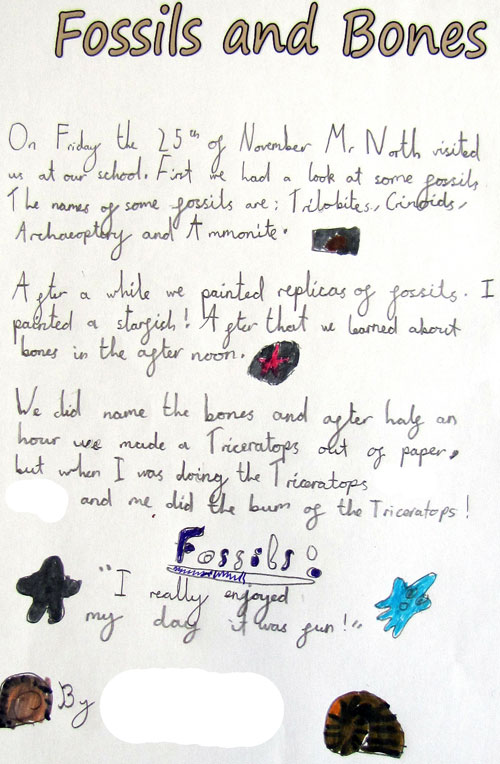 Fossils and Bones
On Friday the 25th of November Mr North visited
us at our school. First we had a look at some fossils
The names of some fossils are: Trilobites, Crinoids,
Archaeoptery and Ammonite.
After a while we painted replicas of fossils. I
painted a starfish! After that we learned about
bones in the after noon.
We did name the bones and after half an
hour we made a Triceratops out of paper,
but when I was doing the Triceratops
and me did the bum of the Triceratops!
Fossils!
"I really enjoyed
my day it was fun!"
By